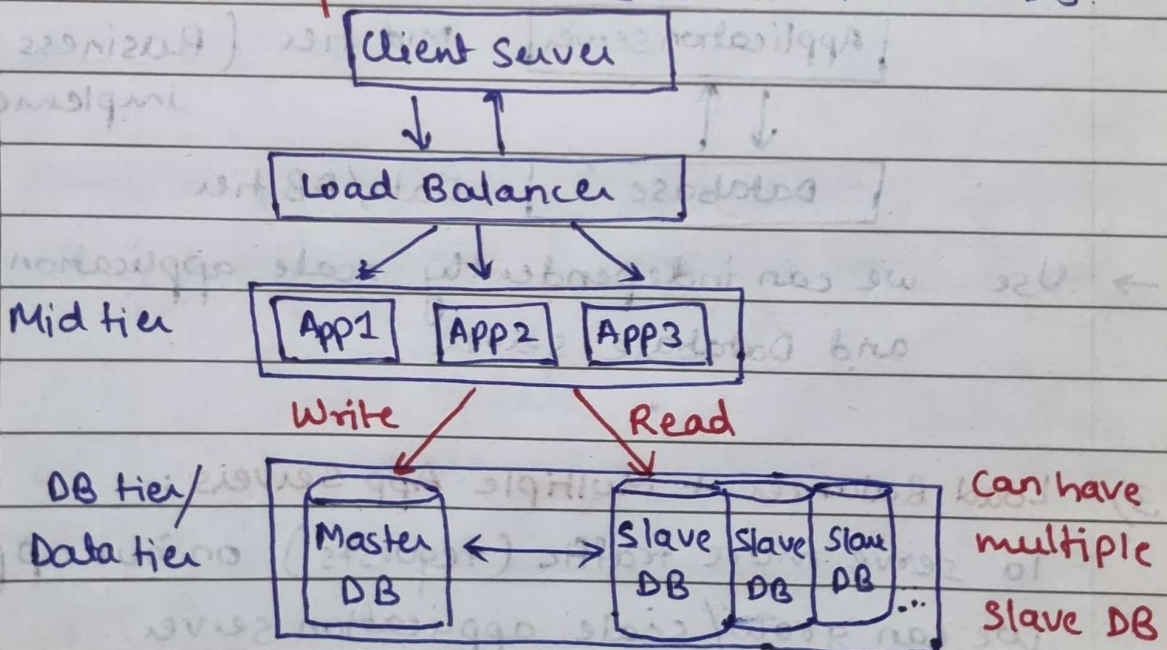 Client Server
Load Balancer
Mid tier
App1 App2 App3
Write Read
DB tier/
Data tier
Master DB
Slave DB
Slave DB
Slave DB
...
Can have
multiple
Slave DB